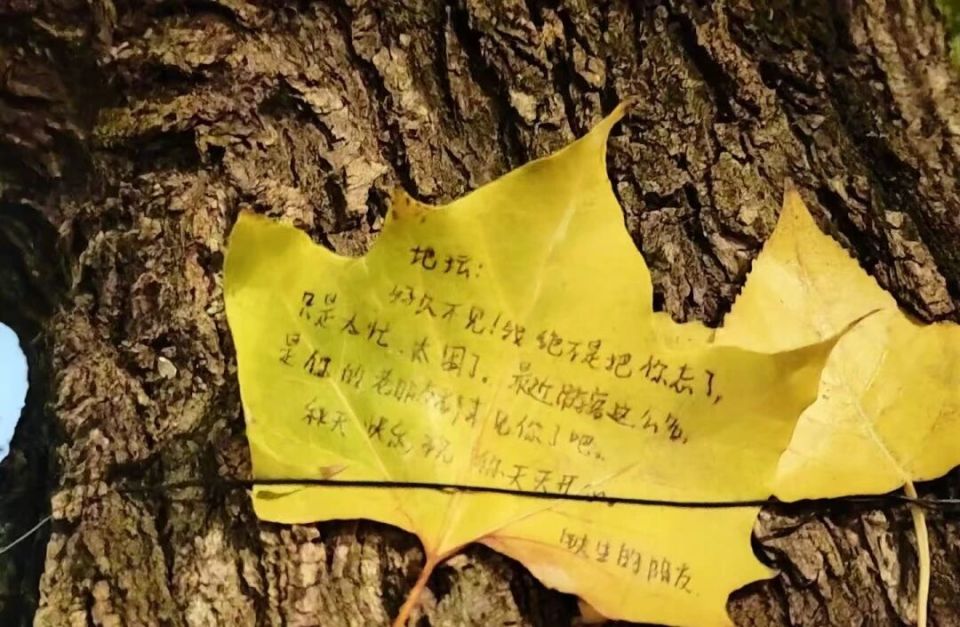 地坛：
好久不见！我绝不是把你忘了，
只是太忙、太困了。最近游客这么多，
是你的老朋友都来见你了吧。
秋天快乐，祝你天天开心
陌生的朋友